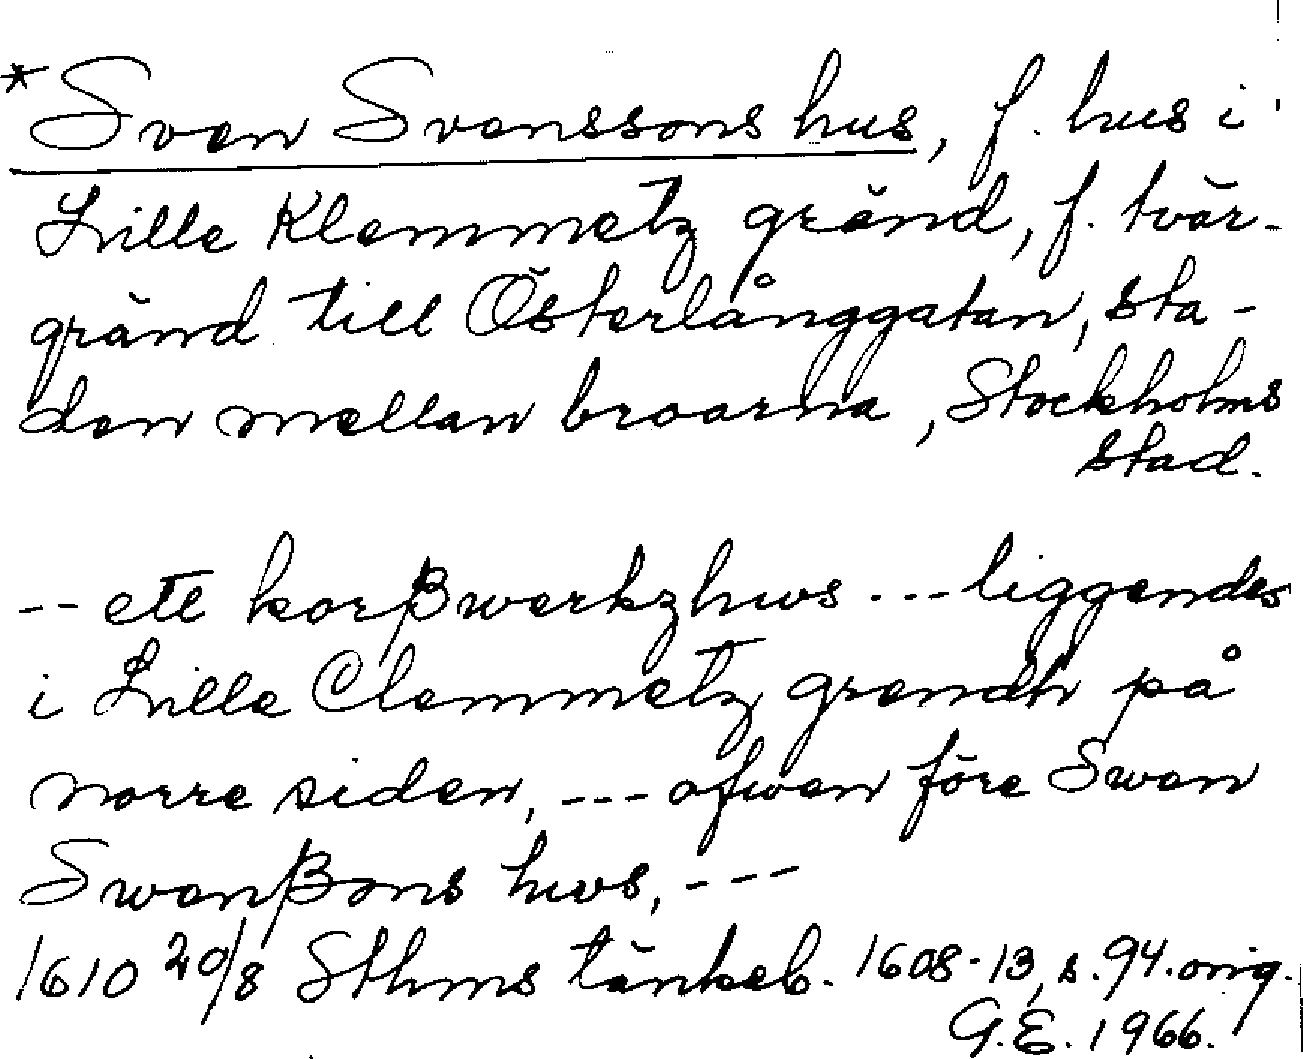 *Sven Svenssons hus, f. hus i
Lille Klemmetz gränd, f. tvär-
gränd till Österlånggatan, Sta-
den mellan broarna, Stockholms
stad.
-- ett korßwerkzhws --- liggendes
i Lille Clemmetz grendh på
norre siden, --- ofwen före Swen
Swenßons hws, ---
1610 20/8 Sthms tänkeb. 1608-13, s. 94. orig.
G.E. 1966.